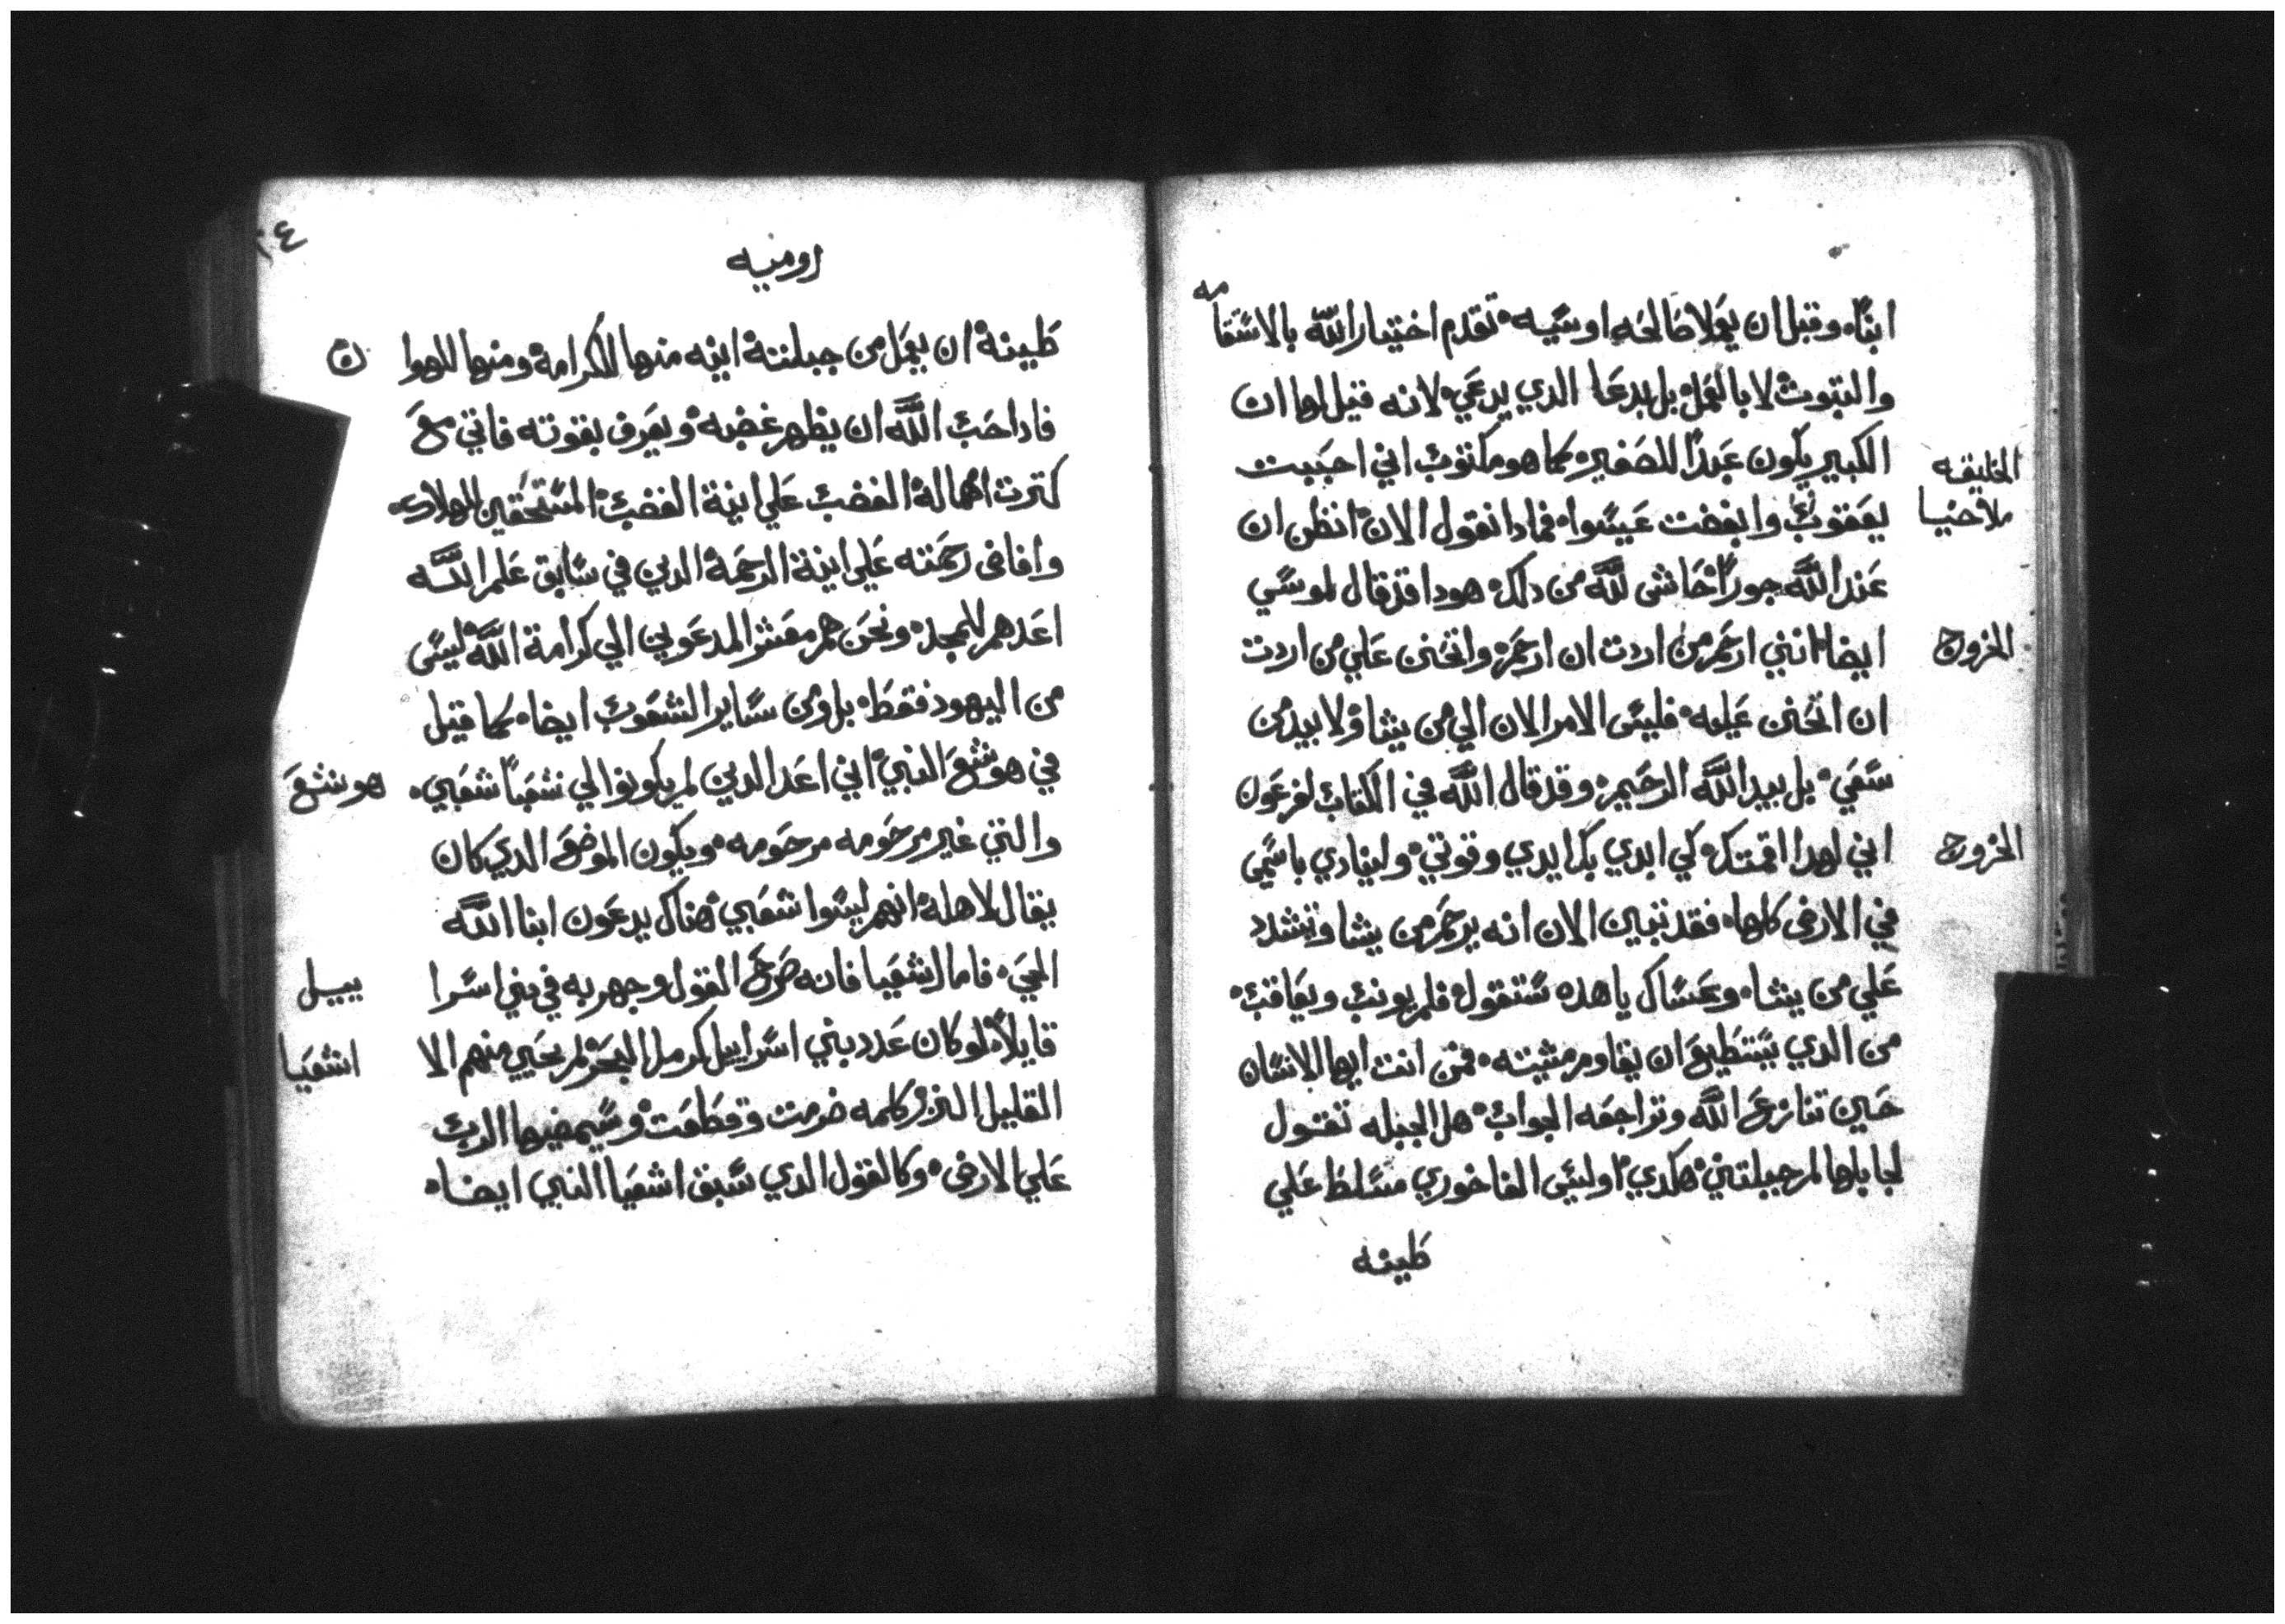 ابناه وقبل ان يعملا صالحه او سيه تقدم اختيار الله بالاستقامه
والتبوث لا بالعمل بل بدعا الدي يدعي لانه قيل لها ان
الكبير يكون عبدًا للصغير كما هو مكتوب اني احببت
الخليقه
يعقوب وابغضت عيسوا فمادا نقول الان انظن ان
ملاخيا
عند الله جورًا حاشى لله من دلك هودا قد قال لموسي
ايضا انني ارحم من اردت ان ارحم واتحنن علي من اردت
الخروج
ان اتحنن عليه فليس الامر الان الي من يشا ولا بيد من
سعي بل بيد الله الرحيم وقد قال الله في الكتاب لفرعون
اني لهدا اقمتك كي ابدي بك ايدي وقوتي ولينادي باسمي
الخروج
في الارض كلها فقد تبين الان انه يرحم من يشا وتشدد
علي من يشا وعساك يا هده ستقول فلم يونب ويعاقب
من الدي يستطيع ان يقاوم مشيته فمن انت ايها الانسان
حين تنازع الله وتراجعه الجواب هل الجبله تقول
لجابلها لم جبلتني هكدي اوليس الفاخوري مسلط علي
طينه
٢٤
روميه
طينة ان يعمل من جبلته انيه منها للكرامة ومنها للهوان
فادا احب الله ان يظهر غضبه ويعرف بقوته فاتي مع
كترت امهاله الغضب علي انية الغضب المستحقين للهلاك
وافاض رحمته علي انية الرحمة الدين في سابق علم الله
اعدهم للمجد ونحن هم معشر المدعوين الي كرامة الله ليس
من اليهود فقط بل ومن ساير الشعوب ايضا كما قيل
في هوشع النبي اني اعد الدين لم يكونوا لي شعبًا شعبي
هوشع
والتي غير مرحومه مرحومه ويكون الموضع الدي كان
يقال لاهله انهم ليسوا شعبي هناك يدعون ابنا الله
الحي فاما اشعيا فانه صرح القول وجهر به في بني اسراييل
قايلاً لو كان عدد بني اسراييل كرمل البحر لم يحيي منهم الا
اشعيا
القليل النزر كلمه ضرمت وقطعت وسيمضيها الرب
علي الارض وكالقول الدي سبق اشعيا النبي ايضا